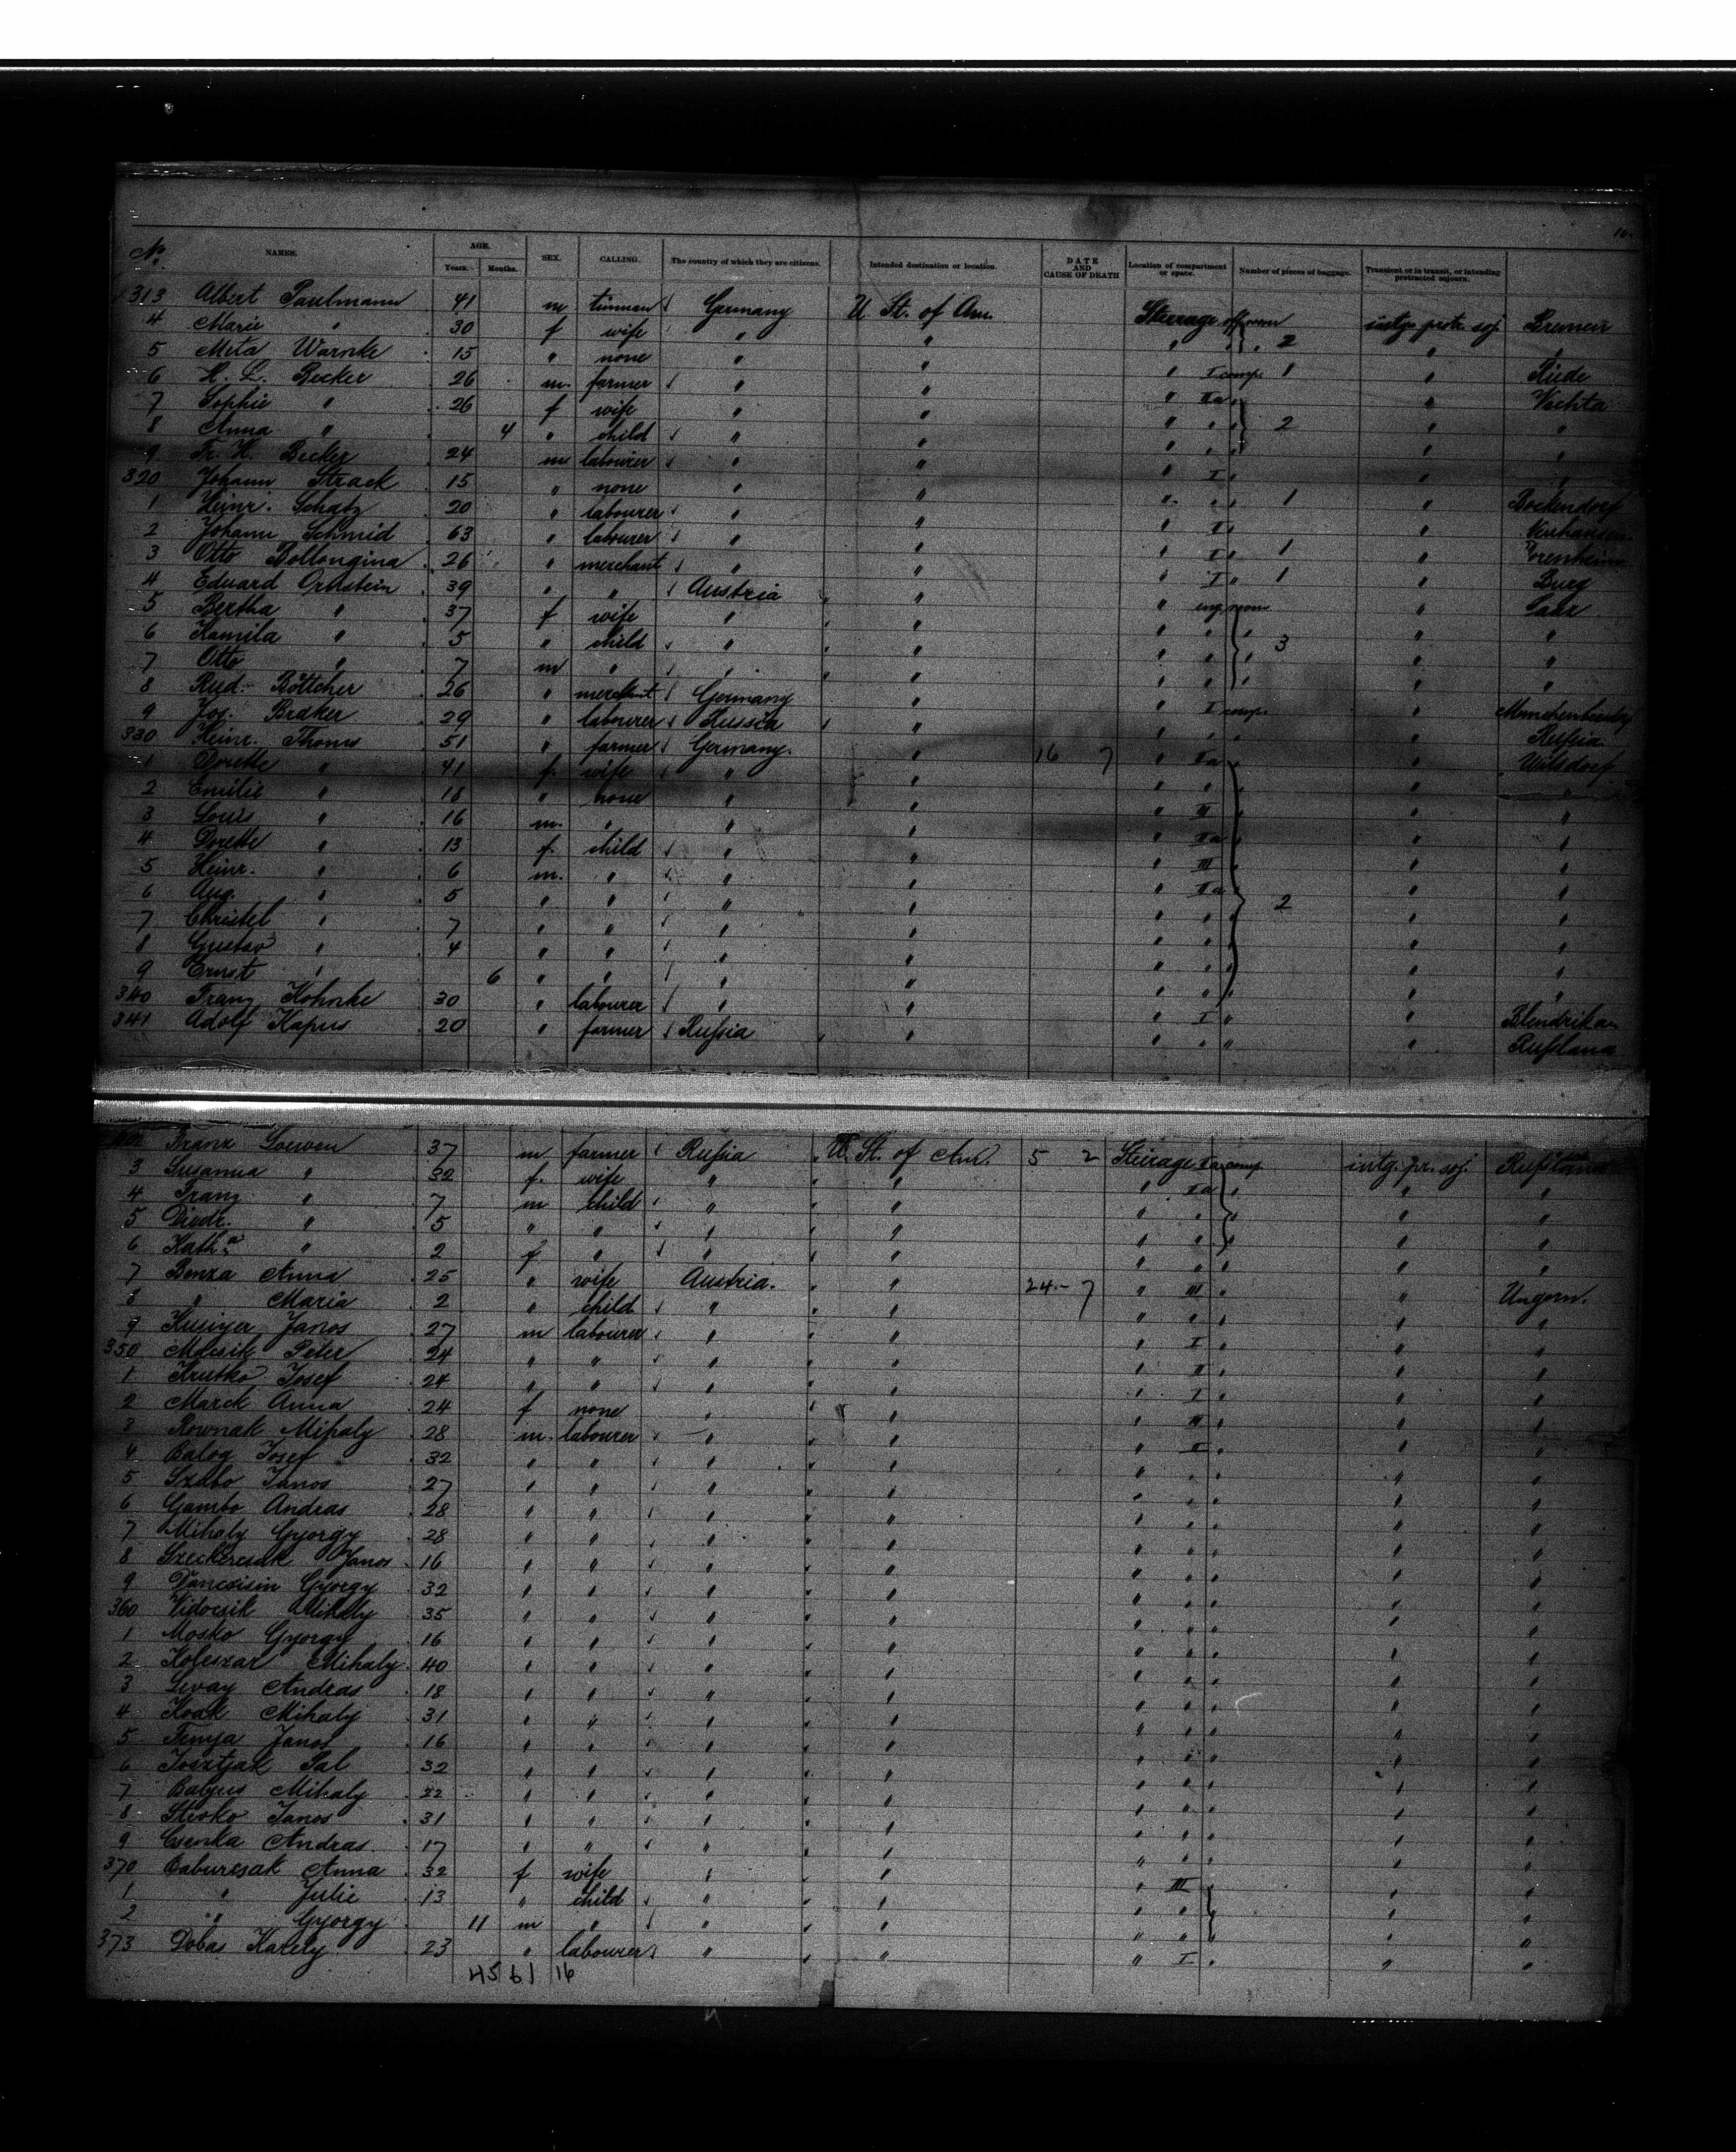 16.
No. NAMES. AGE. Years. Months. SEX. CALLING. The country of which they are citizens. Intended destination or location. DATE AND CAUSE OF DEATH Location of compartment or space. Number of pieces of baggage. Transient or in transit, or intending protracted sojourn.
313 Albert Paulmann 41 m tinman Germany U St. of Am. Steerage intg. protr. soj. Bremen
4 Marie " 30 f wife " " " " 2 " "
5 Meta Warnke 15 " none " " " I comp. 1 " Riede
6 H. L. Becker 26 m. farmer " " " IIa " " Vechta
7 Sophie " 26 f wife " " " " " 2 " "
8 Anna " 4 " child " " " " " " "
9 Fr. H. Becker 24 m labourer " " " I " " "
320 Johann Strack 15 " none " " " " " 1 " Bockendorf
1 Heinr. Schatz 20 " labourer " " " I " "
2 Johann Schmid 63 " labourer " " " I " 1 "
3 Otto Bollongina 26 " merchant " " " I " 1 " Burg
4 Eduard Ornstein 39 " " Austria " " " Saar
5 Bertha " 37 f wife " " " " " " "
6 Kamila " 5 " child " " " " " 3 " "
7 Otto " 7 m " " " " " " " "
8 Rud. Böttcher 26 " merchant Germany " " I comp. "
9 Jos. Braker 29 " labourer Russia " " " " " Russia
330 Heinr. Thoms 51 " farmer Germany. " 16 7 " IIa " " Wilsdorf
1 Dorette " 41 f. wife " " " " " " "
2 Emilie " 18 " none " " " III " " "
3 Louis " 16 m. " " " " IIa " " "
4 Dorette " 13 f. child " " " III " " "
5 Heinr. " 6 m. " " " " IIa " " "
6 Aug. " 5 " " " " " " " 2 " "
7 Christel " 7 " " " " " " " " "
8 Gustav " 4 " " " " " " " " "
9 Ernst " 6 " " " " " " " " "
340 Franz Kohnke 30 " labourer " " " I " "
341 Adolf Kapus 20 " farmer Rußia " " " " " Rußland
Franz Loewen 37 m farmer Rußia U. St. of Am. 5 2 Steirage IIa comp intg. pr. soj. Rußland
3 Susanna " 32 f. wife " " " IIa " " "
4 Franz " 7 m child " " " " " " "
5 Diedr. " 5 " " " " " " " " "
6 Kath.a " 2 f " " " " " " " "
7 Benza Anna 25 " wife Austria. " 24.- 7 " III " " Ungorn.
8 " Maria 2 " child " " " " " " "
9 Kusiyer Janos 27 m labourer " " " I " " "
350 Mdesik Peter 24 " " " " " II " " "
1 Krutko Josef 24 " " " " " I " " "
2 Marck Anna 24 f none " " " III " " "
3 Rownak Mihaly 28 m. labourer " " " II " " "
4 Balog Josef 32 " " " " " " " " "
5 Szabo Janos 27 " " " " " " " " "
6 Gambo Andras 28 " " " " " " " " "
7 Mihaly Gyorgy 28 " " " " " " " " "
8 Szeckeresak Janos 16 " " " " " " " " "
9 Dancsisin Gyorgy 32 " " " " " " " " "
360 Vidocsik Mihaly 35 " " " " " " " " "
1 Mosko Gyorgy 16 " " " " " " " " "
2 Koleszar Mihaly 40 " " " " " " " " "
3 Levay Andras 18 " " " " " " " " "
4 Koak Mihaly 31 " " " " " " " " "
5 Fenya Janos 16 " " " " " " " " "
6 Josztjak Pal 32 " " " " " " " " "
7 Babjus Mihaly 22 " " " " " " " " "
8 Stevko Janos 31 " " " " " " " " "
9 Csenka Andras 17 " " " " " " " " "
370 Baburcsak Anna 32 f wife " " " III " "
1 " Julie 13 " child " " " " " "
2 " Gyorgy 11 m " " " " " " " "
373 Dobas Karoly 23 " labourer " " " I " " "
45 61 16